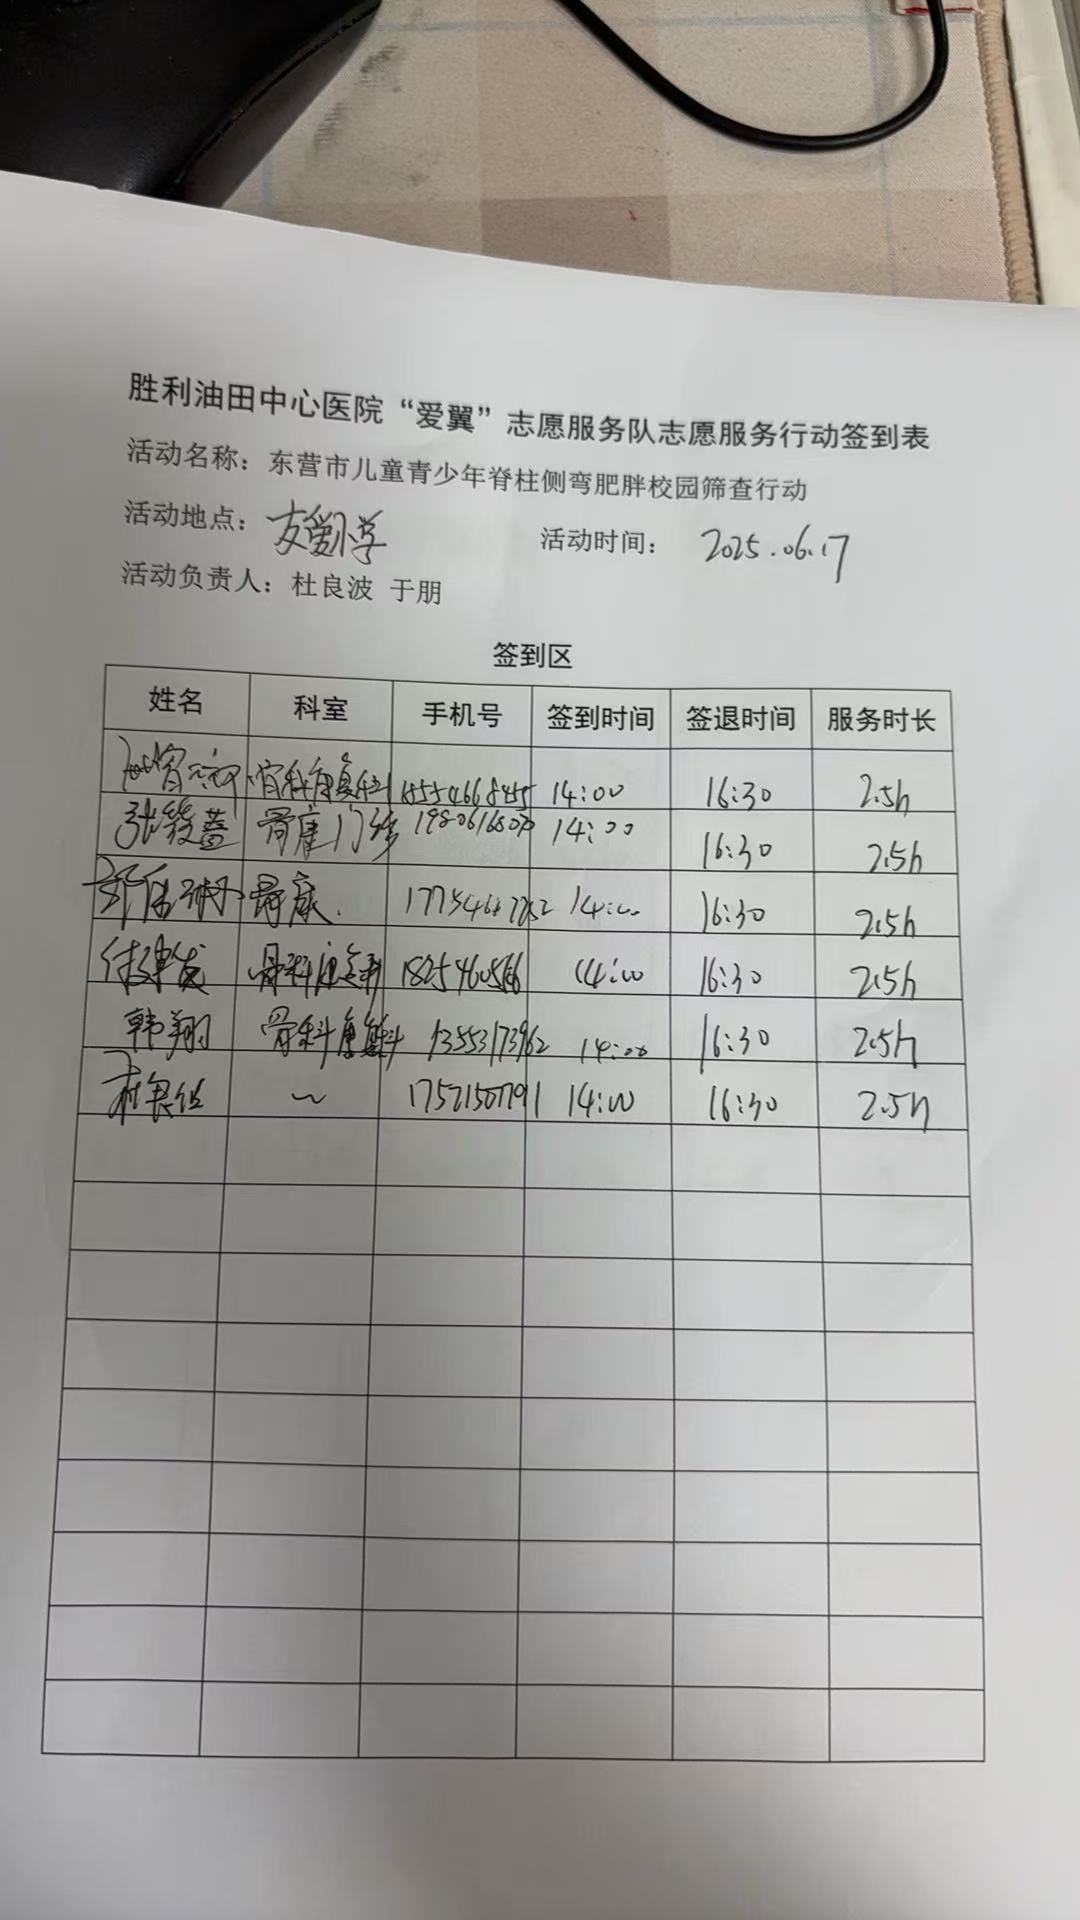 胜利油田中心医院“爱翼”志愿服务队志愿服务行动签到表
活动名称：东营市儿童青少年脊柱侧弯肥胖校园筛查行动
活动地点：友爱小学 活动时间：2025.06.17
活动负责人：杜良波 于朋
签到区
姓名 科室 手机号 签到时间 签退时间 服务时长
骨科康复科 14:00 16:30 2.5h
张筱蔷 骨康门诊 14:00 16:30 2.5h
骨康. 14:00 16:30 2.5h
骨科康复科 14:00 16:30 2.5h
韩翔 骨科康复科 13553173962 14:00 16:30 2.5h
~ 14:00 16:30 2.5h